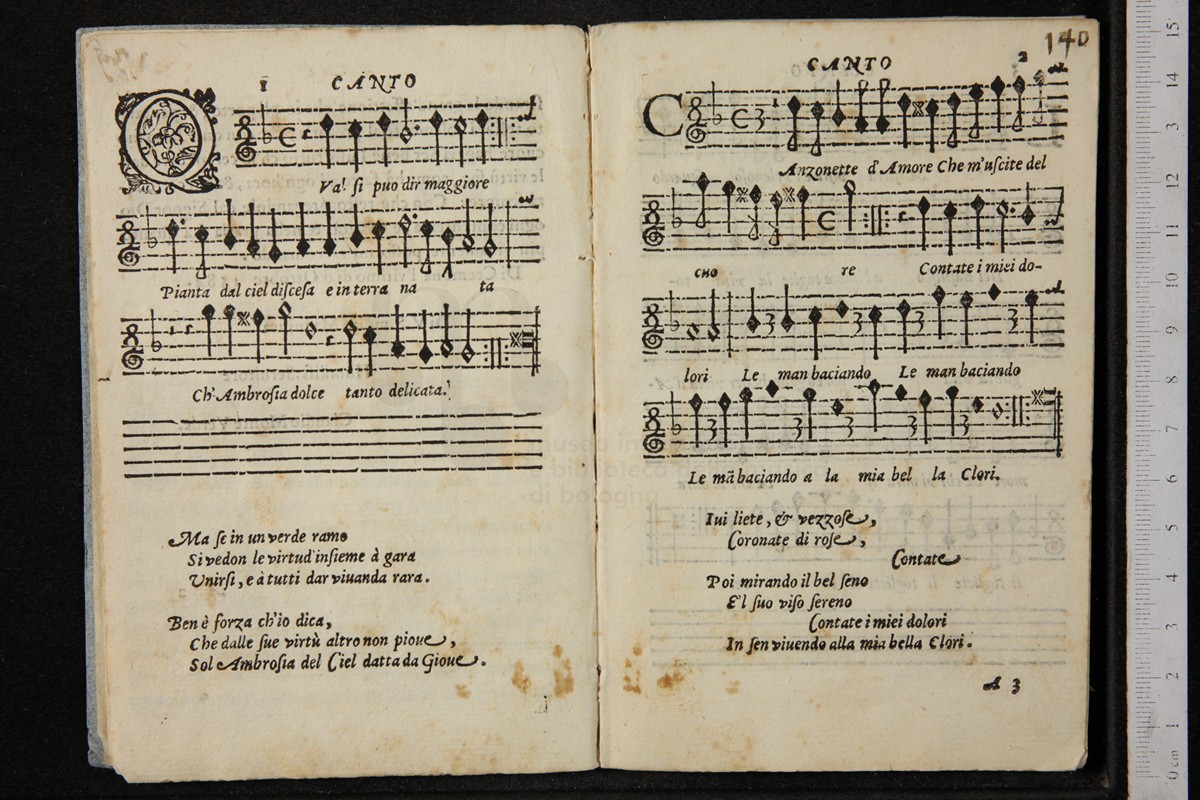 1 CANTO
QVal si puo dir maggiore
Pianta dal ciel discesa e in terra na ta
Ch'Ambrosia dolce tanto delicata.
Ma se in un verde ramo
Si vedon le virtud'insieme à gara
Unirsi, e à tutti dar viuanda rara.
Ben è forza ch'io dica,
Che dalle sue virtù altro non pioue,
Sol Ambrosia del Ciel datta da Gioue.
140
CANTO 2
CAnzonette d'Amore Che m'uscite del
cuo re Contate i miei do-
lori Le man baciando Le man baciando
Le mā baciando a la mia bel la Clori.
Iui liete, & vezzose,
Coronate di rose,
Contate
Poi mirando il bel seno
E'l suo viso sereno
Contate i miei dolori
In sen viuendo alla mia bella Clori.
A 3
museo in
biblioteca della musica
di bologna
0 cm 1 2 3 4 5 6 7 8 9 10 11 12 13 14 15